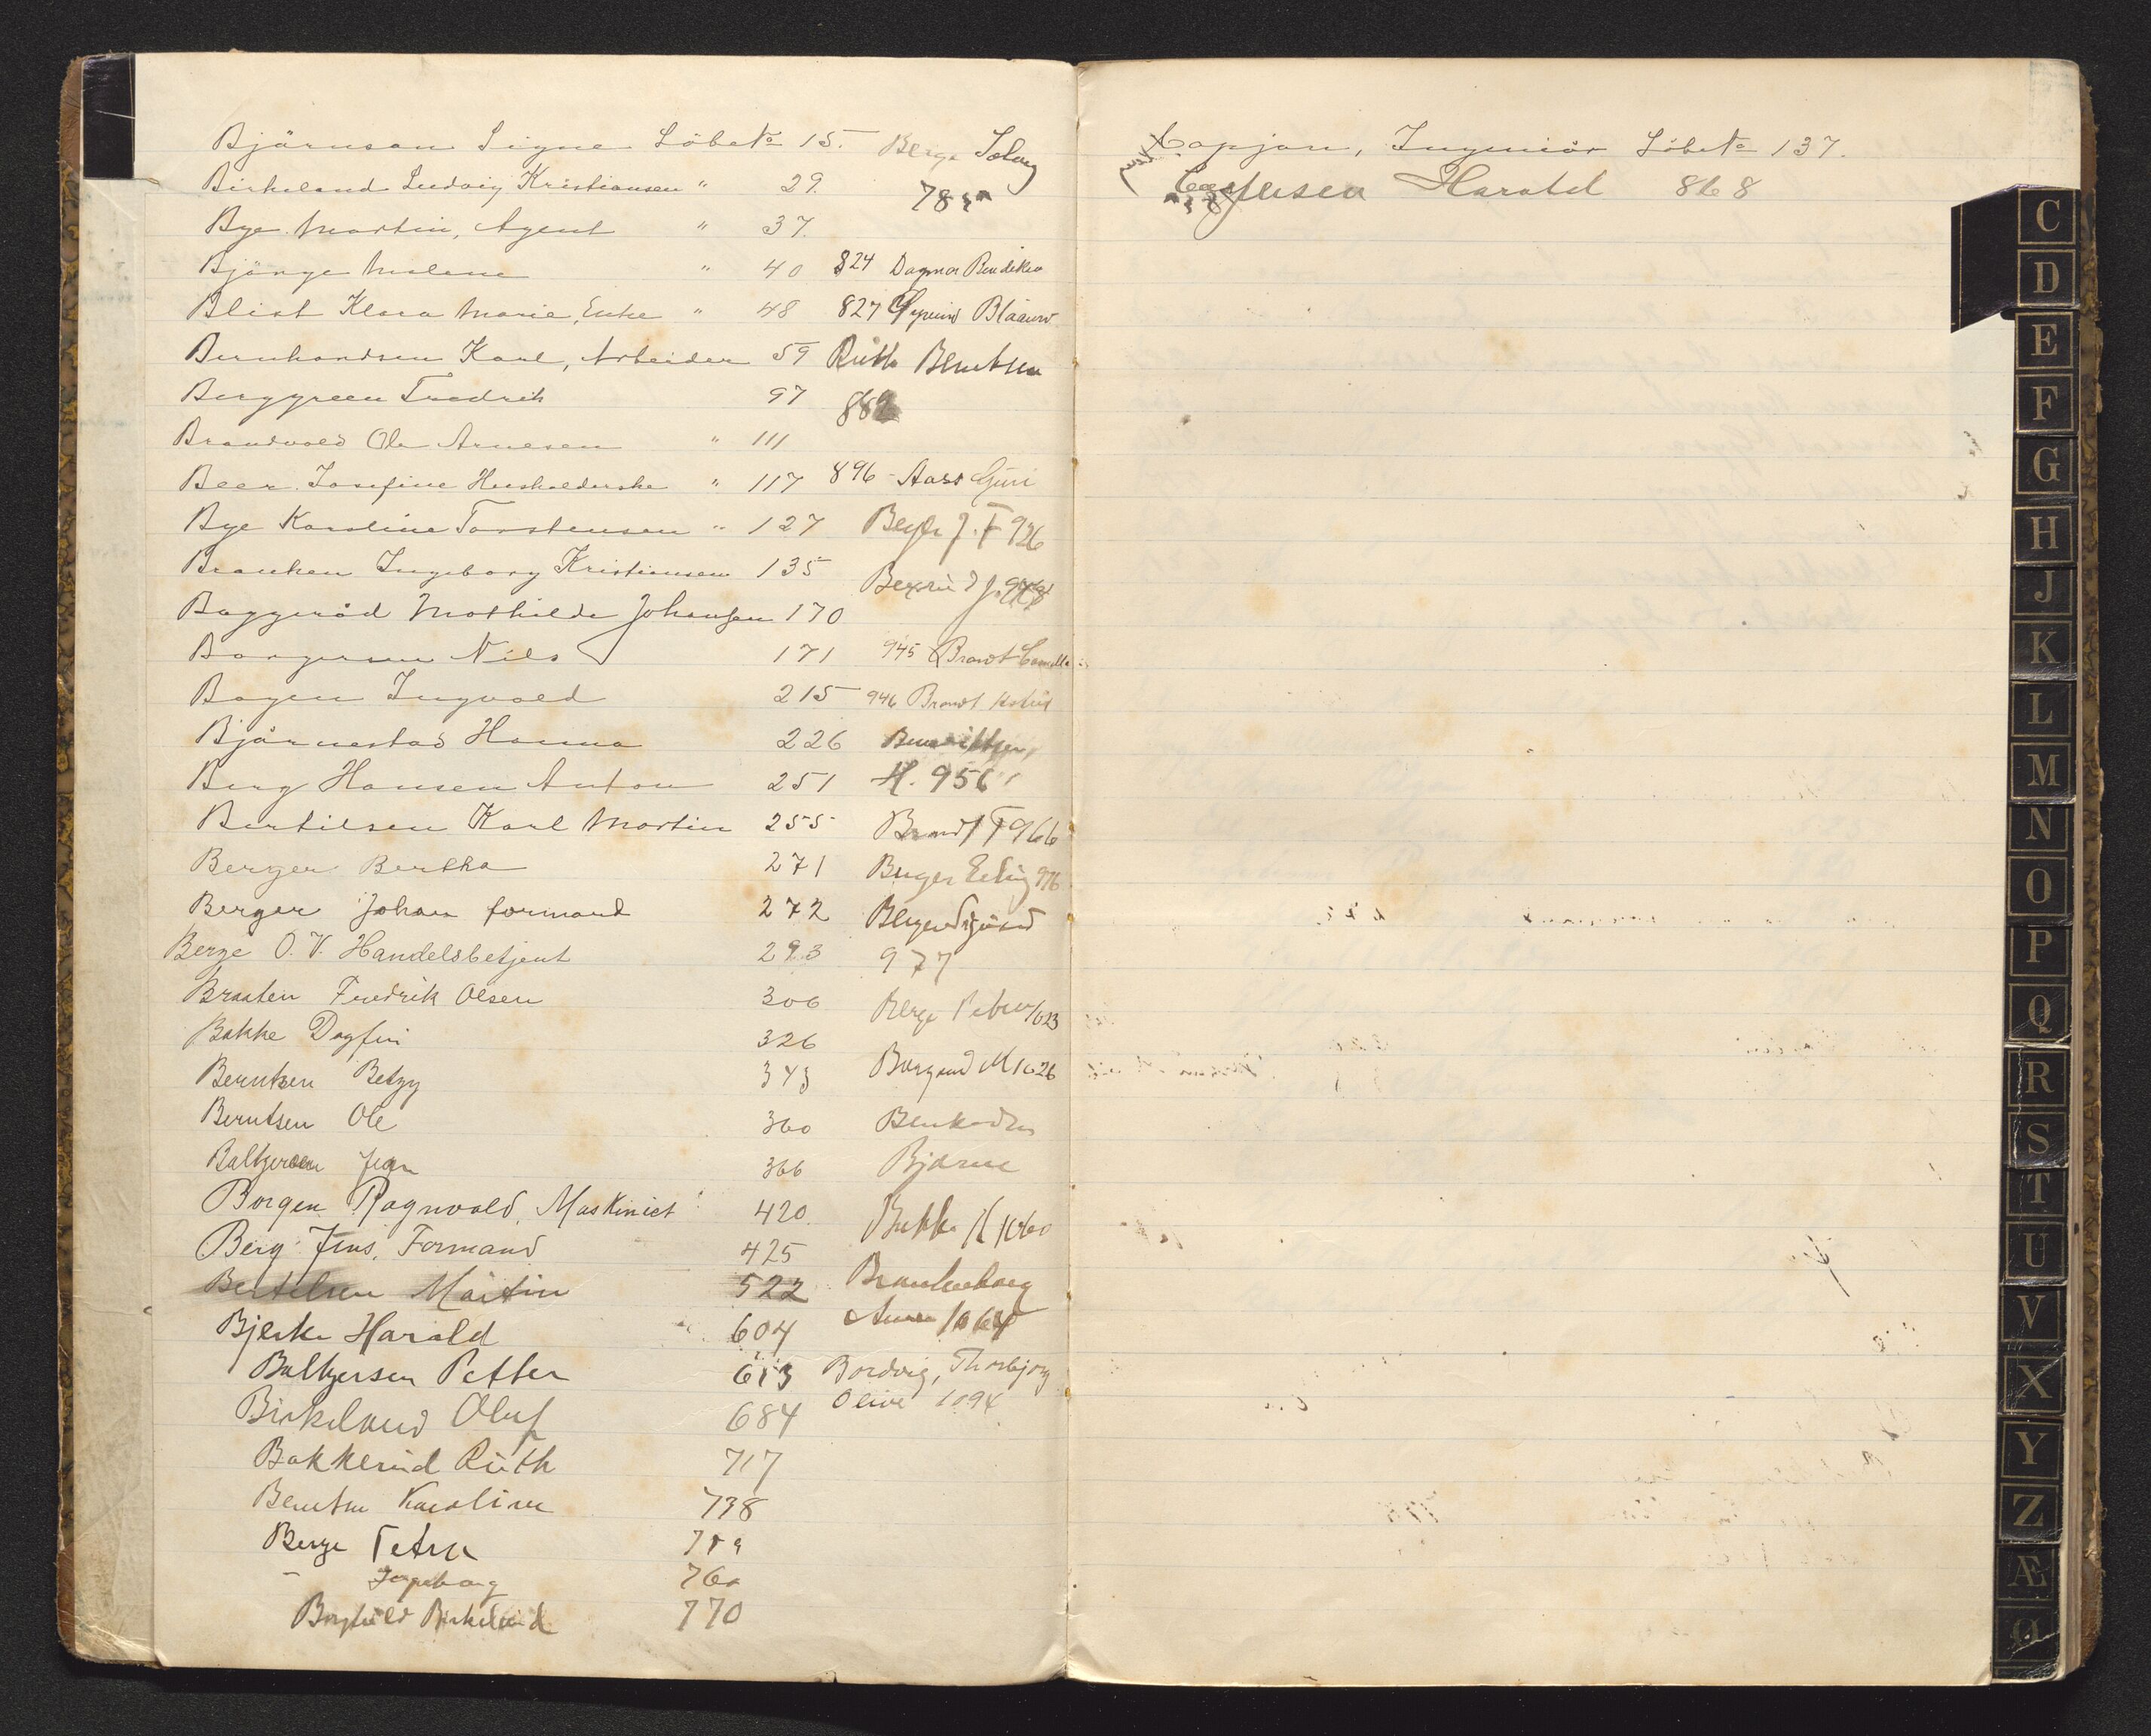 Björnson Signe Löbe No 15.
Birkeland Ludvig Kristiansen " 29.
Bye Martin, Agent " 37.
Bjönge Malene " 40
Blist Klara Marie, Enke " 48
Bernhardsen Karl, Arbeider 59
Berggreen Fredrik 97
Brandvold Ole Arnesen " 111
Beer Josefine Husholderske " 117
Bye Karoline Torstensen " 127
Brauken Ingeborg Kristiansen 135
Baggeröd Mathilde Johansen 170
Borgersen Nils 171
Bogen Ingvald 215
Björnestad Hanna 226
Berg Hansen Anton 251
Bertilsen Karl Martin 255
Berger Bertha 271
Berger Johan formand 272
Berge O. V. Handelsbetjent 293
Braaten Fredrik Olsen 306
Bakke Dagfin 326
Berntsen Betzy 343
Berntsen Ole 360
Baltzersen Jean 366
Borgen Ragnvald, Maskinist 420.
Berg Jens, Formand 425
Bertelsen Martin 522
Bjerke Harald 604
Baltzersen Petter 613
Birkeland Oluf 684
Bakkerud Ruth 717
Berntsen Karoline 738
Berge Petra
– Ingeborg 760
Borghild Birkelund 770
Berge Solveig
78
824 Dagmar Bendiks
827 Blaauw
Ruth Berntsen
882
896 - Aass Guri
J. F 926
J.
945 Brandt Camilla
946 Brandt Astrid
H. 956
Brandt T 966
Berger Erling 976
Bergen Sigurd
977
Berge Peter 1023
Borgend M 1026
Bjarne
Bakke K 1060
Brandenborg
Anna 1064
Bordvig, Thorbjörg
Olive 1094
Capjon, Ingeniör Löbe No 137.
Caspersen Harald 868
C
D
E
F
G
H
J
K
L
M
N
O
P
Q
R
S
T
U
V
X
Y
Z
Æ
Ø